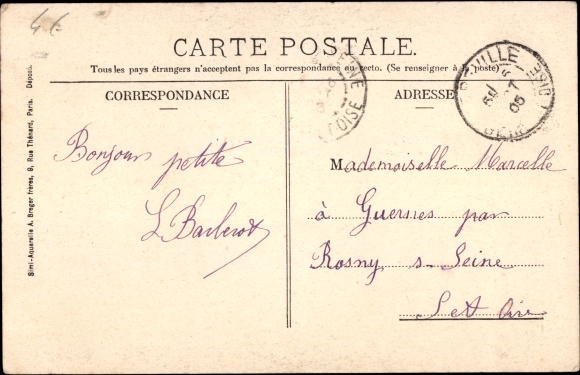 4€
CARTE POSTALE.
Tous les pays étrangers n'acceptent pas la correspondance au recto. (Se renseigner à la poste)
CORRESPONDANCE
ADRESSE
Bonjour petite
L Barberot
Mademoiselle Marcelle
à Guernes par
Rosny s Seine
S et Oise
Simi-Aquarelle A. Breger frères, 9, Rue Thénard, Paris. Déposé.
OISE
05